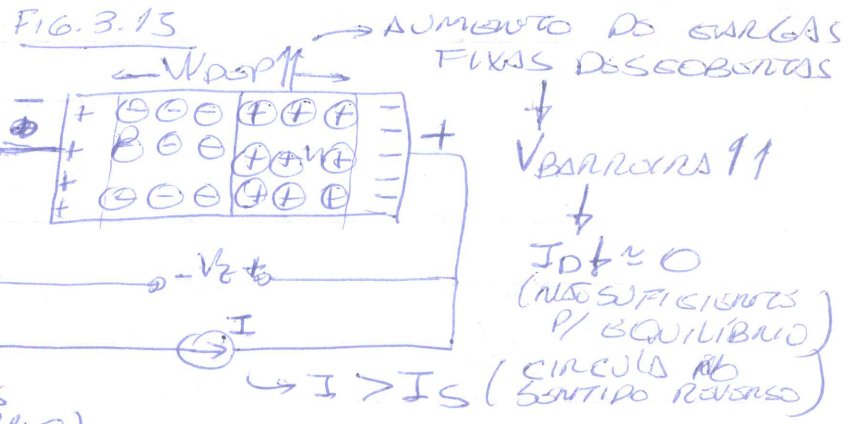 FIG. 3.15
→ AUMENTO DE CARGAS
FIXAS DESCOBERTAS
← WDEP↑↑ →
VBARREIRA ↑↑
ID↓ ≃ 0
(NÃO SUFICIENTE
P/ EQUILÍBRIO)
− + ⊖ ⊖ ⊖ ⊕ ⊕ ⊕ −
+ P ⊖ ⊖ ⊕ ⊕ N ⊕ − +
+ ⊖ ⊖ ⊖ ⊕ ⊕ ⊕ −
− VZ +
I
↳ I > IS (CIRCULA NO
SENTIDO REVERSO)